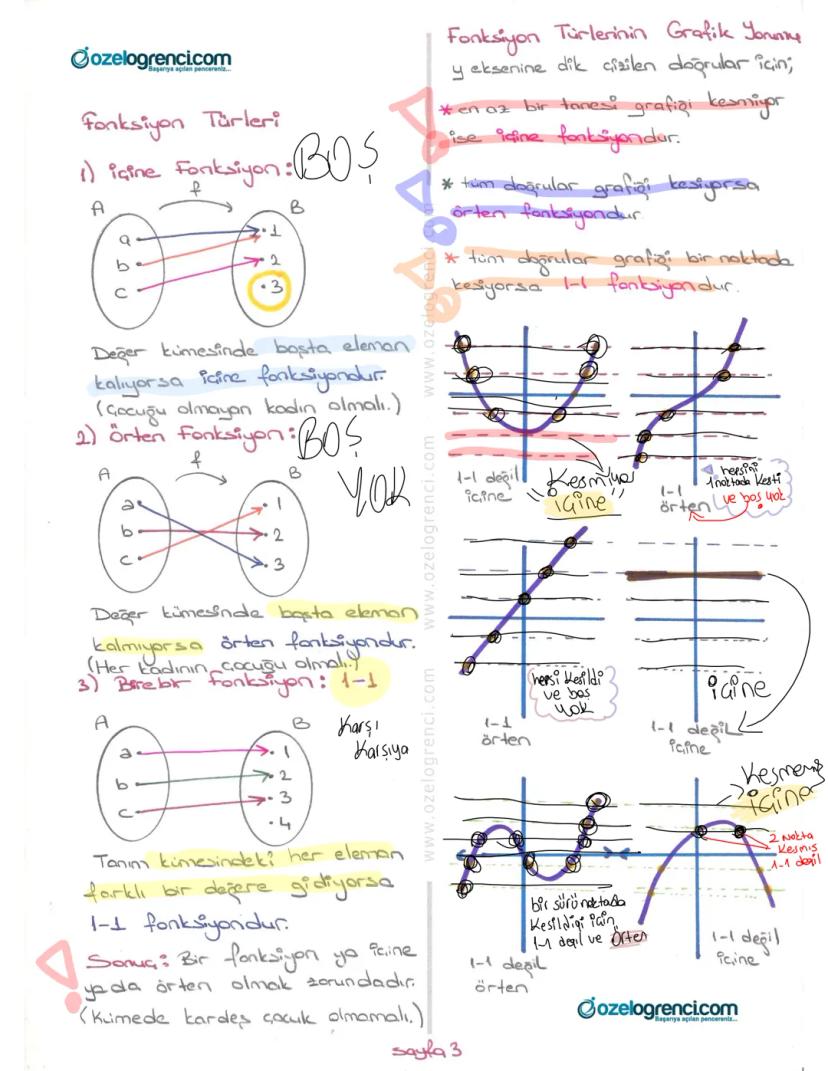 ozelogrenci.com
Başarıya açılan pencereniz...
Fonksiyon Türleri
1) İçine Fonksiyon: BOŞ
f
A
B
a
b
c
1
2
3
Değer kümesinde boşta eleman
kalıyorsa içine fonksiyondur.
(Çocuğu olmayan kadın olmalı.)
2) Örten Fonksiyon: BOŞ
YOK
f
A
B
a
b
c
1
2
3
Değer kümesinde boşta eleman
kalmıyorsa örten fonksiyondur.
(Her kadının çocuğu olmalı.)
3) Birebir Fonksiyon: 1-1
A
B
Karşı
Karşıya
a
b
c
1
2
3
4
Tanım kümesindeki her eleman
farklı bir değere gidiyorsa
1-1 fonksiyondur.
Sonuç: Bir fonksiyon ya içine
yada örten olmak zorundadır.
(Kümede kardeş çocuk olmamalı.)
www.ozelogrenci.com
www.ozelogrenci.com
www.ozelogrenci.com
Fonksiyon Türlerinin Grafik Yorumu
y eksenine dik çizilen doğrular için;
* en az bir tanesi grafiği kesmiyor
ise içine fonksiyondur.
* tüm doğrular grafiği kesiyorsa
örten fonksiyondur
* tüm doğrular grafiği bir noktada
kesiyorsa 1-1 fonksiyondur.
1-1 değil
içine
Kesmiyor
içine
1-1
örten
hepsini
1 noktada kesti
ve boş yok
hepsi kesildi
ve boş
yok
1-1
örten
içine
1-1 değil
içine
bir sürü noktada
kesildiği için
1-1 değil ve örten
1-1 değil
örten
Kesmemiş
içine
2 nokta
kesmiş
1-1 değil
1-1 değil
içine
ozelogrenci.com
Başarıya açılan pencereniz...
sayfa 3